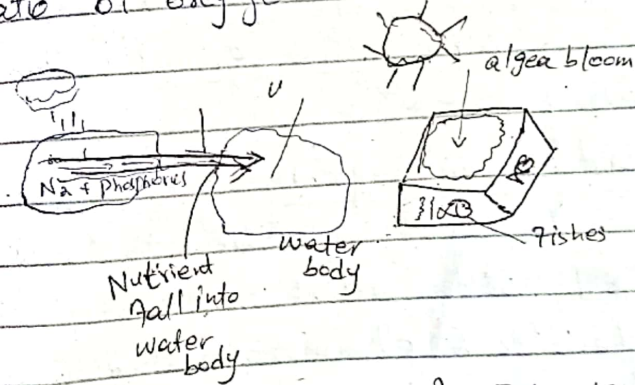 algea bloom
Na + Phosphorus
water
body
Fishes
Nutrient
fall into
water
body